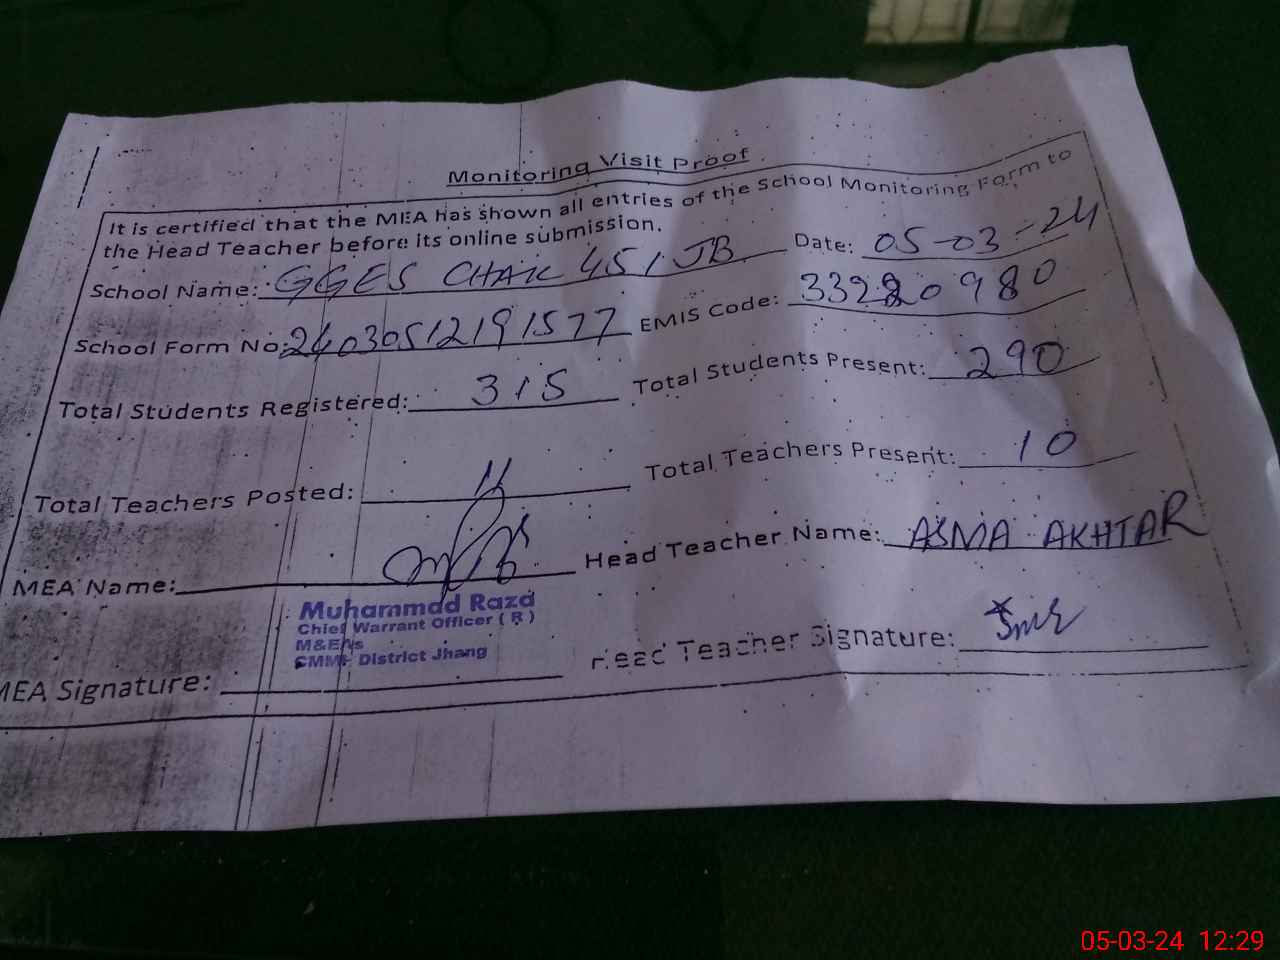 Monitoring Visit Proof
It is certified that the MEA has shown all entries of the School Monitoring Form to
the Head Teacher before its online submission.
School Name: GGES CHAK 451 JB Date: 05-03-24
School Form No: 24030512191577 EMIS Code: 33220980
Total Students Registered: 315 Total Students Present: 290
Total Teachers Posted: 11 Total Teachers Present: 10
MEA Name: Head Teacher Name: ASMA AKHTAR
Muhammad Raza
Chief Warrant Officer ( R )
M&EAs
CMMF District Jhang
MEA Signature: Head Teacher Signature:
05-03-24 12:29